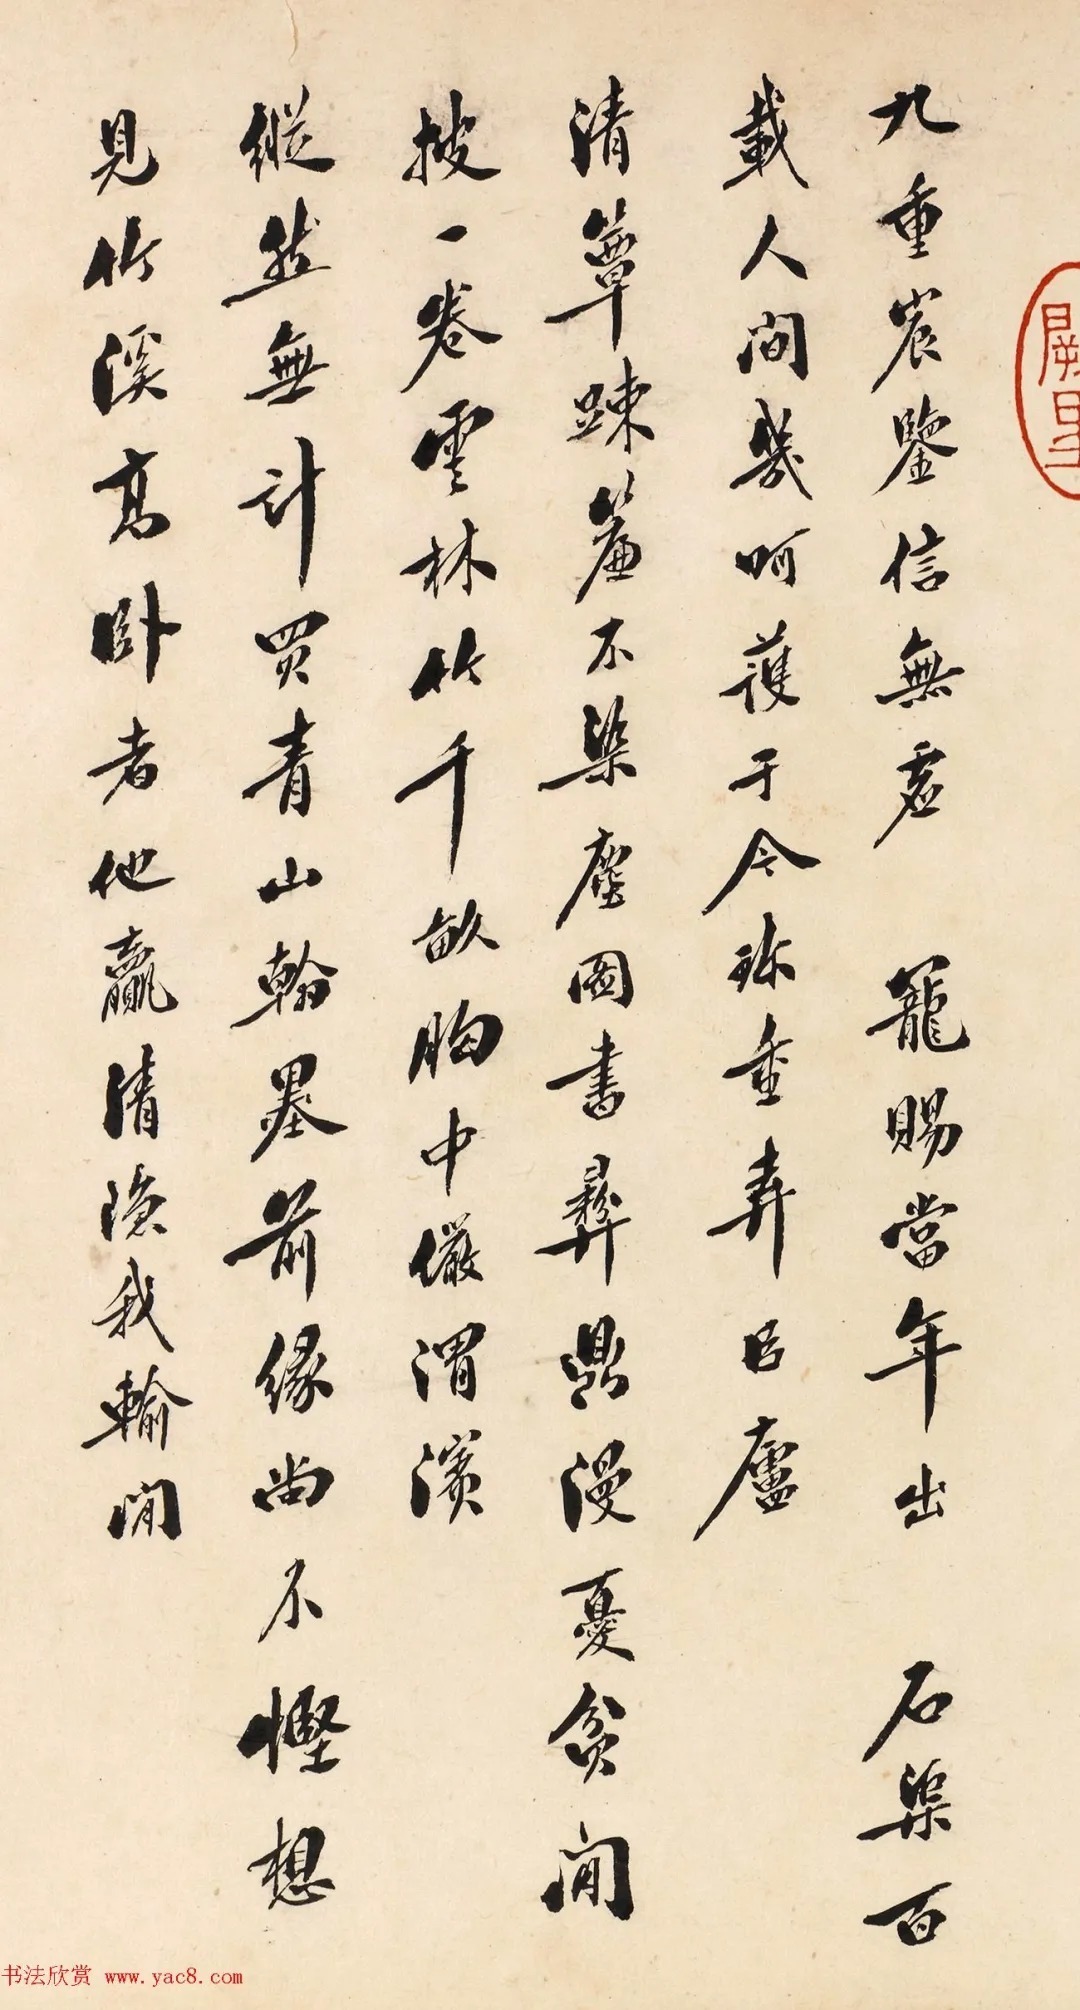 九重宸鑒信無虛 寵賜當年出 石渠百
載人間幾呵護于今珎重弆吾廬
清簟疎簾不染塵圖書彝鼎漫憂貧閒
披一卷雲林竹千畝胸中儼渭濱
縱然無計買青山翰墨前緣尚不慳想
見竹溪高卧者他贏清隐我輸閒
闕里
书法欣赏 www.yac8.com